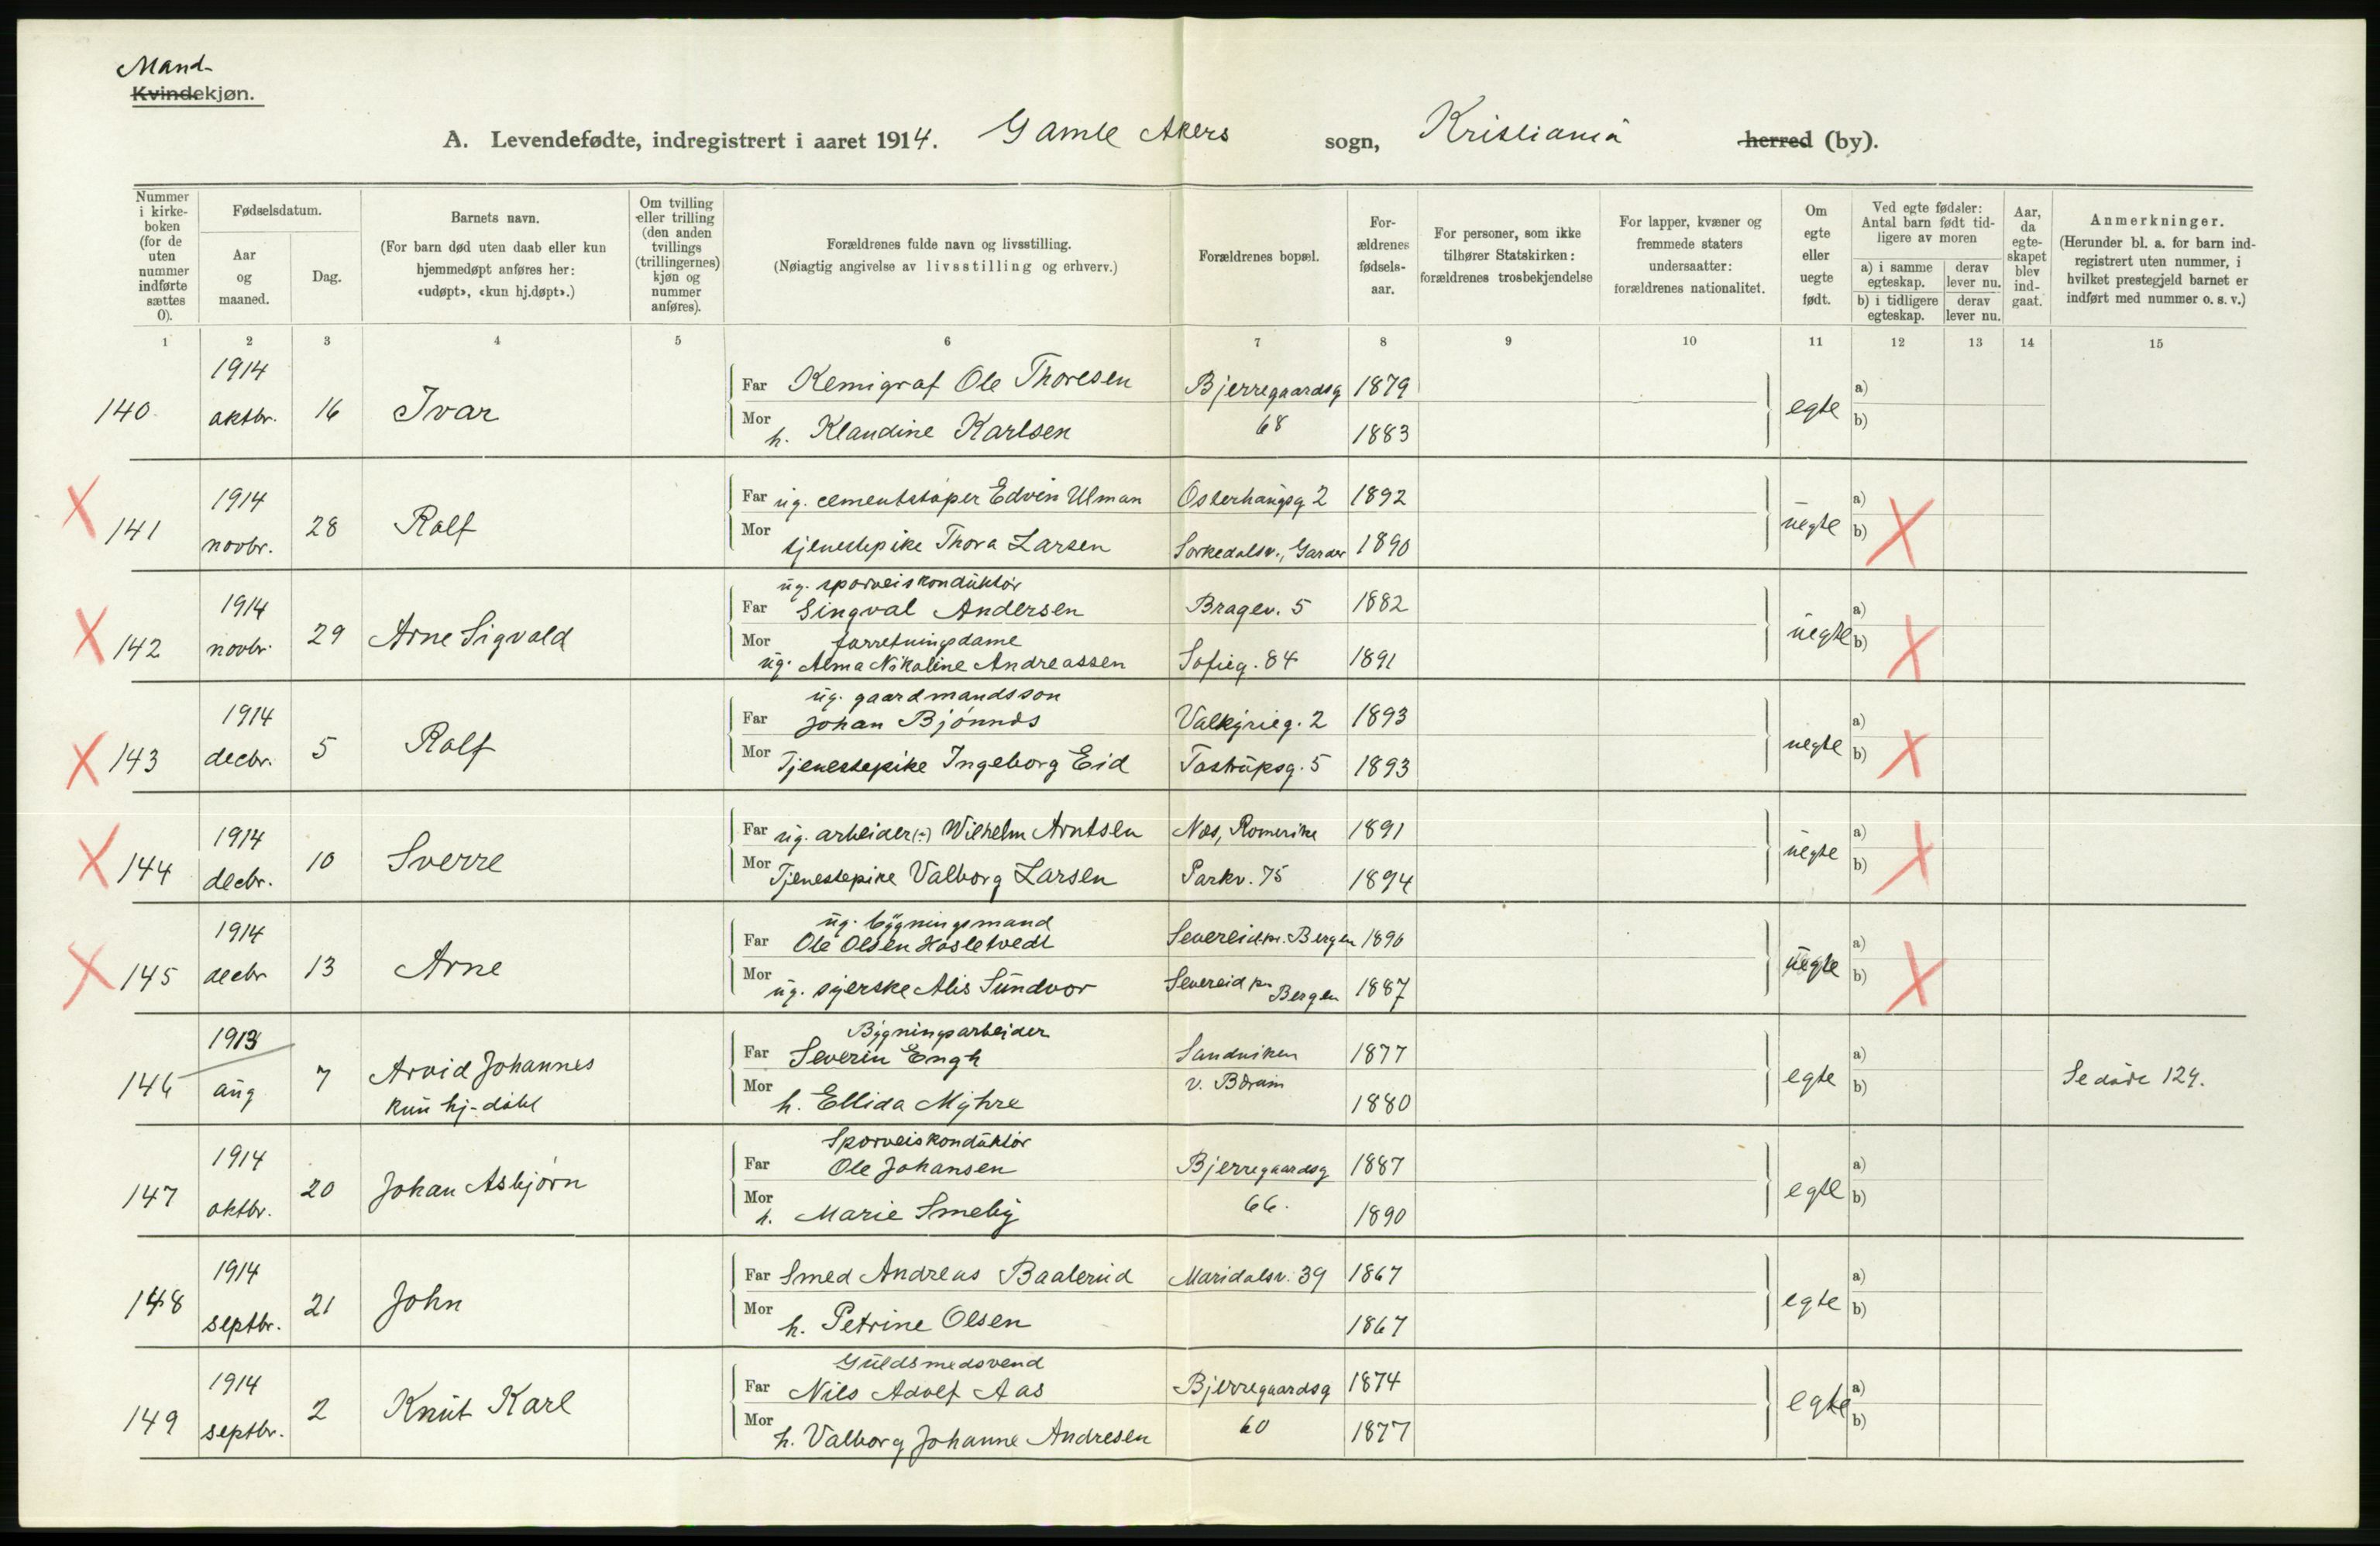 Mand-
Kvindekjøn.
A. Levendefødte, indregistrert i aaret 1914. Gamle Akers sogn, Kristiania herred (by).
Nummer i kirkeboken (for de uten nummer indførte sættes 0).
Fødselsdatum.
Aar og maaned.
Dag.
Barnets navn.
(For barn død uten daab eller kun hjemmedøpt anføres her: «udøpt», «kun hj.døpt».)
Om tvilling eller trilling (den anden tvillings (trillingernes) kjøn og nummer anføres).
Forældrenes fulde navn og livsstilling.
(Nøiagtig angivelse av livsstilling og erhverv.)
Forældrenes bopæl.
Forældrenes fødselsaar.
For personer, som ikke tilhører Statskirken: forældrenes trosbekjendelse
For lapper, kvæner og fremmede staters undersaatter: forældrenes nationalitet.
Om egte eller uegte født.
Ved egte fødsler: Antal barn født tidligere av moren
a) i samme egteskap. derav lever nu.
b) i tidligere egteskap. derav lever nu.
Aar, da egteskapet blev indgaat.
Anmerkninger.
(Herunder bl. a. for barn indregistrert uten nummer, i hvilket prestegjeld barnet er indført med nummer o. s. v.)
1 2 3 4 5 6 7 8 9 10 11 12 13 14 15
140 1914 oktbr. 16 Ivar
Far Kemigraf Ole Thoresen Bjerregaardsg 1879
Mor h. Klaudine Karlsen 68 1883
egte a) b)
X 141 1914 novbr. 28 Rolf
Far ug. cementstøper Edvin Ulman Osterhausg 2 1892
Mor tjenestepike Thora Larsen Sorkedalsv., Garder 1890
uegte a) b) X
X 142 1914 novbr. 29 Arne Sigvald
ug. sporveiskonduktør
Far Singval Andersen Bragev. 5 1882
Mor forretningsdame
ug. Alma Nikoline Andreassen Sofieg. 84 1891
uegte a) b) X
X 143 1914 decbr. 5 Rolf
ug. gaardmandsson
Far Johan Bjønnes Valkyrieg. 2 1893
Mor Tjenestepike Ingeborg Eid Tostrupsg. 5 1893
uegte a) b) X
X 144 1914 decbr. 10 Sverre
Far ug. arbeider (÷) Wilhelm Arntsen Nes, Romerike 1891
Mor Tjenestepike Valborg Larsen Parkv. 75 1894
uegte a) b) X
X 145 1914 decbr 13 Arne
ug. bygningsmand
Far Ole Olsen Hasletvedt Severeid pr. Bergen 1890
Mor ug. syerske Alis Sundvor Severeid pr Bergen 1887
uegte a) b) X
146 1913 aug 7 Arvid Johannes
kun hj-døbt
Bygningsarbeider
Far Severin Engh Sandviken 1877
Mor h. Ellida Myhre v. Bærum 1880
egte a) b) Se døde 129.
147 1914 oktbr. 20 Johan Asbjørn
Sporveiskonduktør
Far Ole Johansen Bjerregaardsg 1887
Mor h. Marie Smeby 66. 1890
egte a) b)
148 1914 septbr. 21 John
Far Smed Andreas Baalerud Maridalsv. 39 1867
Mor h. Petrine Olsen 1867
egte a) b)
149 1914 septbr. 2 Knut Karl
Guldsmedsvend
Far Nils Adolf Aas Bjerregaardsg 1874
Mor h. Valborg Johanne Andresen 60 1877
egte a) b)